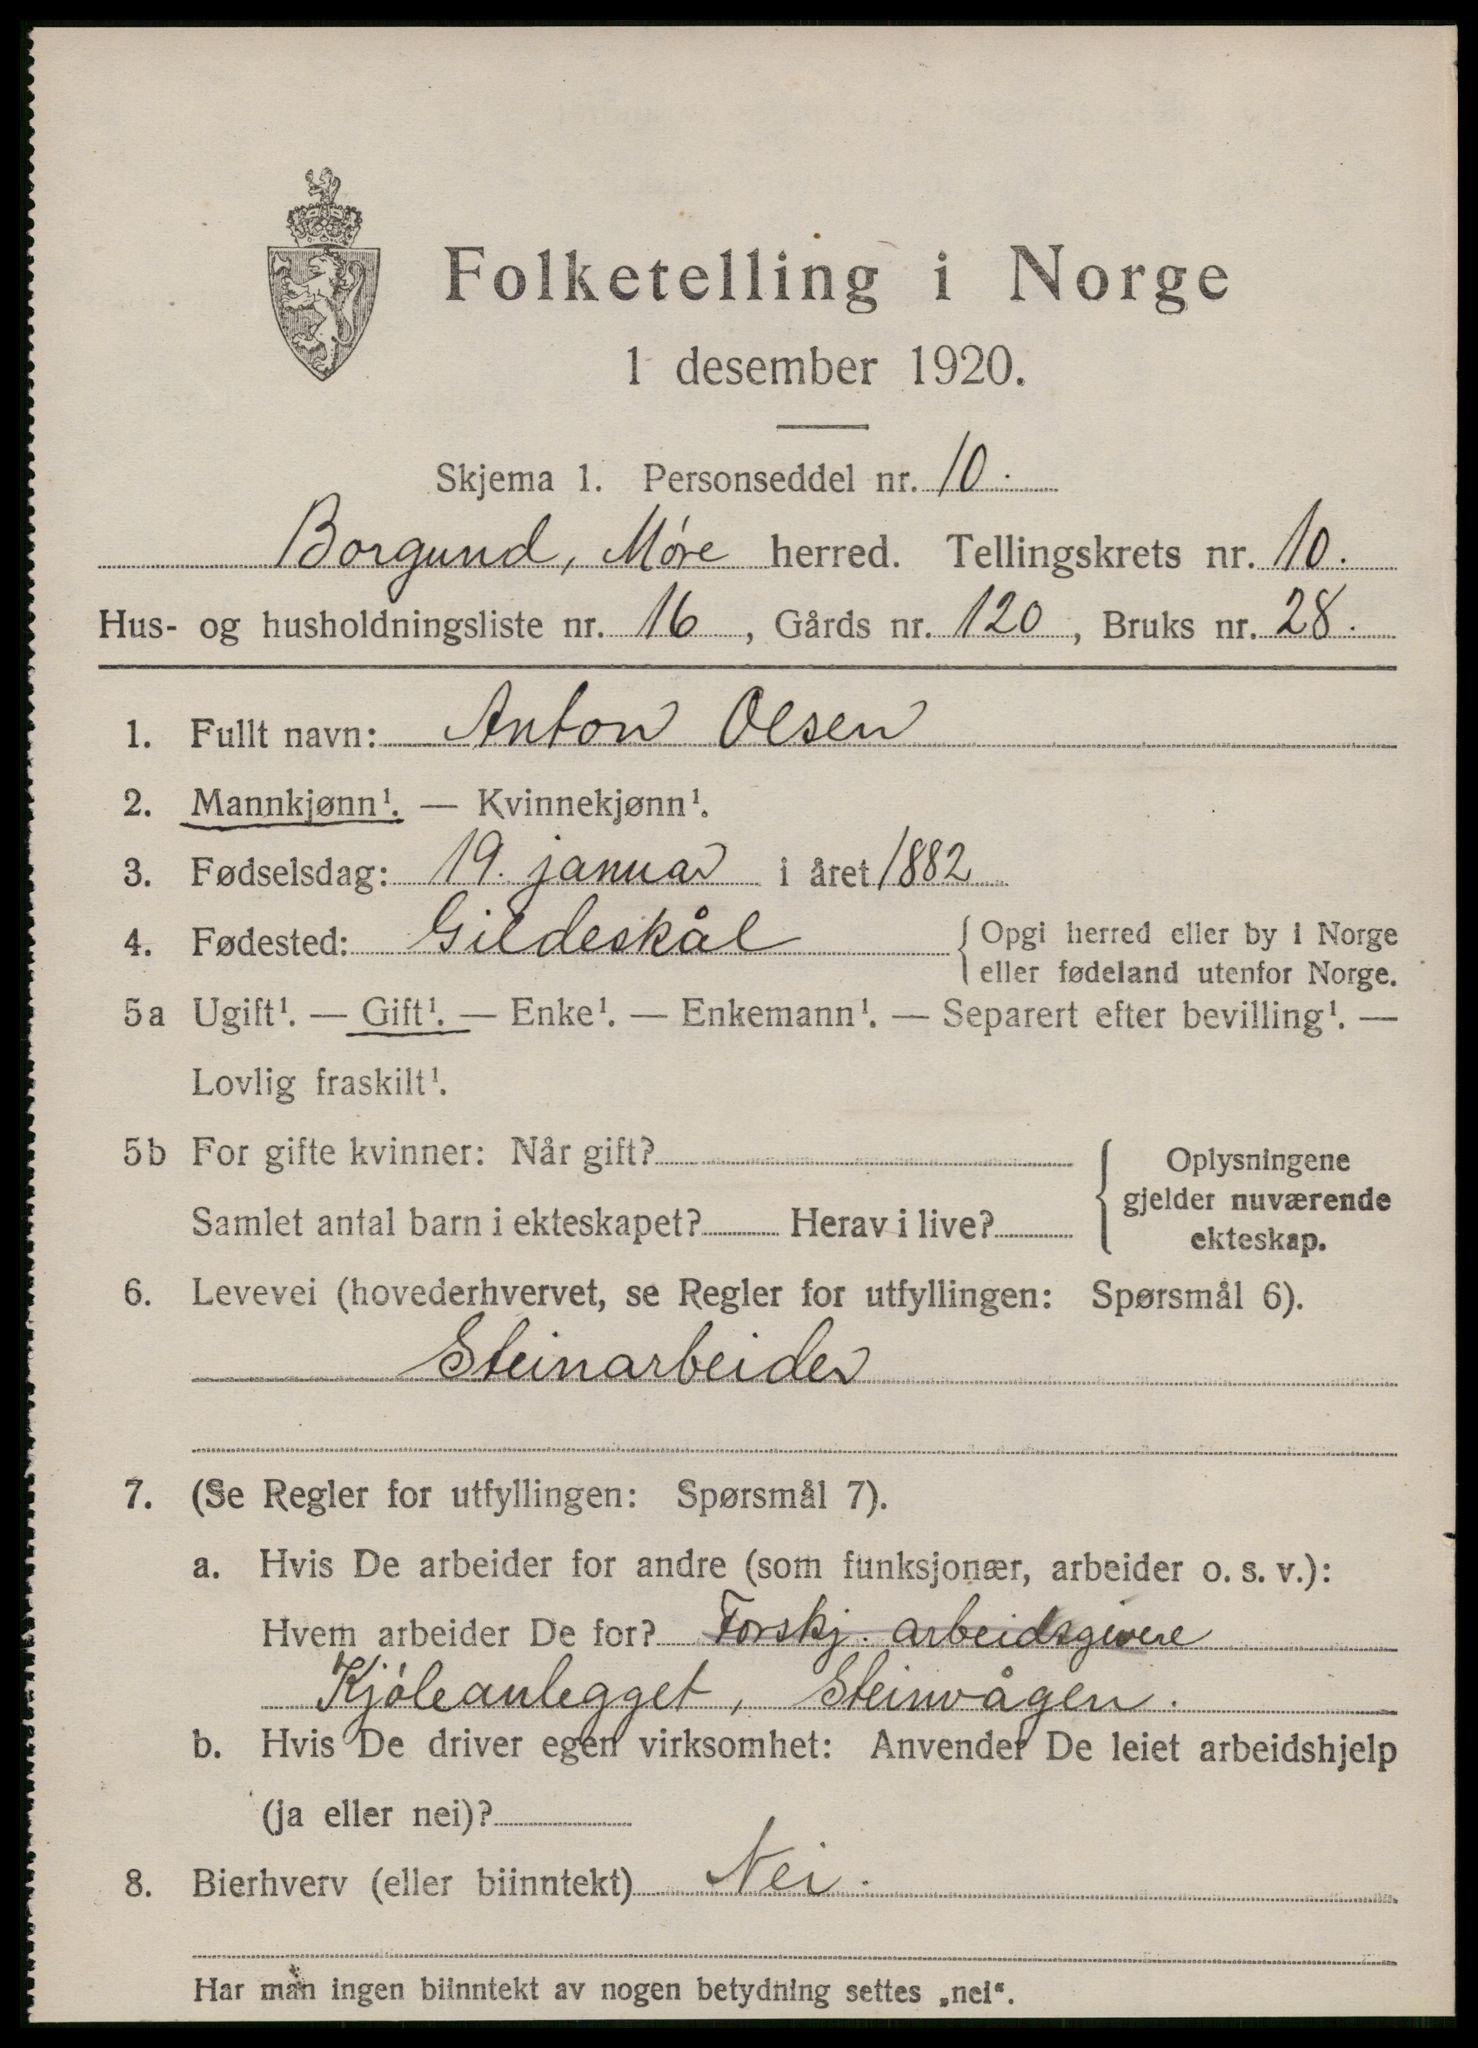 Folketelling i Norge
1 desember 1920.
Skjema 1. Personseddel nr. 10.
Borgund, Møre herred. Tellingskrets nr. 10.
Hus- og husholdningsliste nr. 16, Gårds nr. 120, Bruks nr. 28.
1. Fullt navn: Anton Olsen
2. Mannkjønn¹. — Kvinnekjønn¹.
3. Fødselsdag: 19. januar i året 1882
4. Fødested: Gildeskål { Opgi herred eller by i Norge
eller fødeland utenfor Norge.
5a Ugift¹. — Gift¹. — Enke¹. — Enkemann¹. — Separert efter bevilling¹. —
Lovlig fraskilt¹.
5b For gifte kvinner: Når gift?
Samlet antal barn i ekteskapet? Herav i live?
{ Oplysningene
gjelder nuværende
ekteskap.
6. Levevei (hovederhvervet, se Regler for utfyllingen: Spørsmål 6).
Steinarbeider
7. (Se Regler for utfyllingen: Spørsmål 7).
a. Hvis De arbeider for andre (som funksjonær, arbeider o. s. v.):
Hvem arbeider De for? Forskj. arbeidsgivere
Kjøleanlegget, Steinvågen.
b. Hvis De driver egen virksomhet: Anvender De leiet arbeidshjelp
(ja eller nei)?
8. Bierhverv (eller biinntekt) Nei.
Har man ingen biinntekt av nogen betydning settes „nei“.